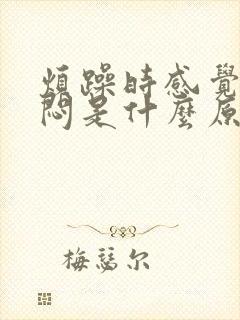 煩躁時感覺
悶是什麼原
梅瑟尔